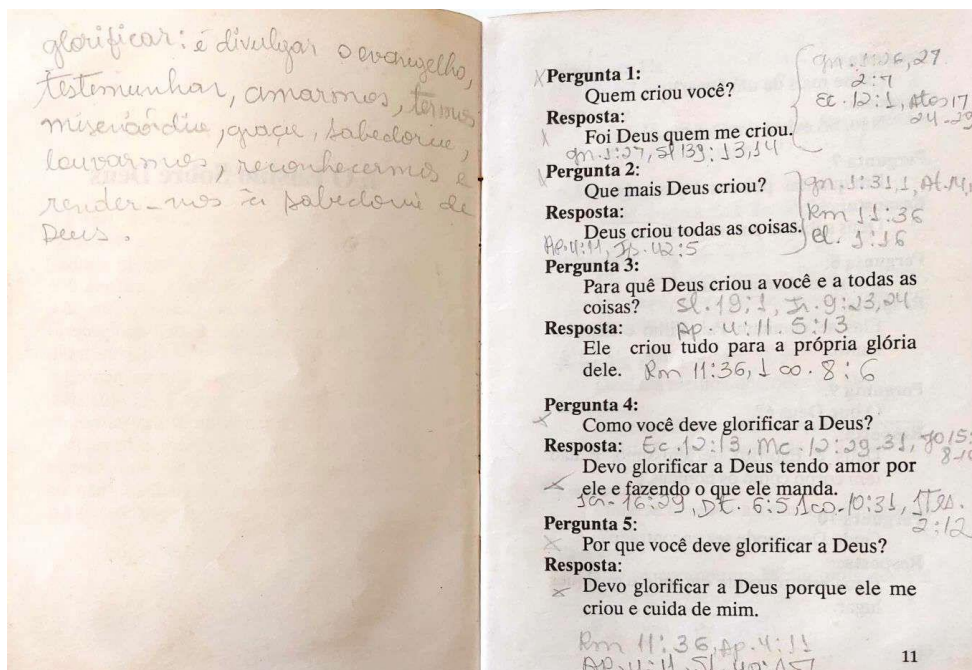 glorificar: é divulgar o evangelho,
testemunhar, amarmos, termos
misericórdia, graça, sabedoria,
louvarmos, reconhecermos e
render-nos à sabedoria de
Deus.
Pergunta 1:
Quem criou você?
Resposta:
Foi Deus quem me criou.
gn. 1:26,27
2:7
Ec. 12:1, Atos 17
24-29
gn. 1:27, Sl 139: 13,14
Pergunta 2:
Que mais Deus criou?
Resposta:
Deus criou todas as coisas.
gn. 1:31,1, At.14,
Rm 11:36
Cl. 1:16
Ap.4:11, 42:5
Pergunta 3:
Para quê Deus criou a você e a todas as
coisas? Sl. 19:1, Jr. 9:23,24
Resposta: Ap. 4:11. 5:13
Ele criou tudo para a própria glória
dele. Rm 11:36, 1 co. 8:6
Pergunta 4:
Como você deve glorificar a Deus?
Resposta: Ec.12:13, Mc. 12:29-31, Jo 15:
Devo glorificar a Deus tendo amor por
ele e fazendo o que ele manda.
16:29, Dt. 6:5, 1co.10:31,
2:12
Pergunta 5:
Por que você deve glorificar a Deus?
Resposta:
Devo glorificar a Deus porque ele me
criou e cuida de mim.
Rm 11:36, Ap. 4:11
11